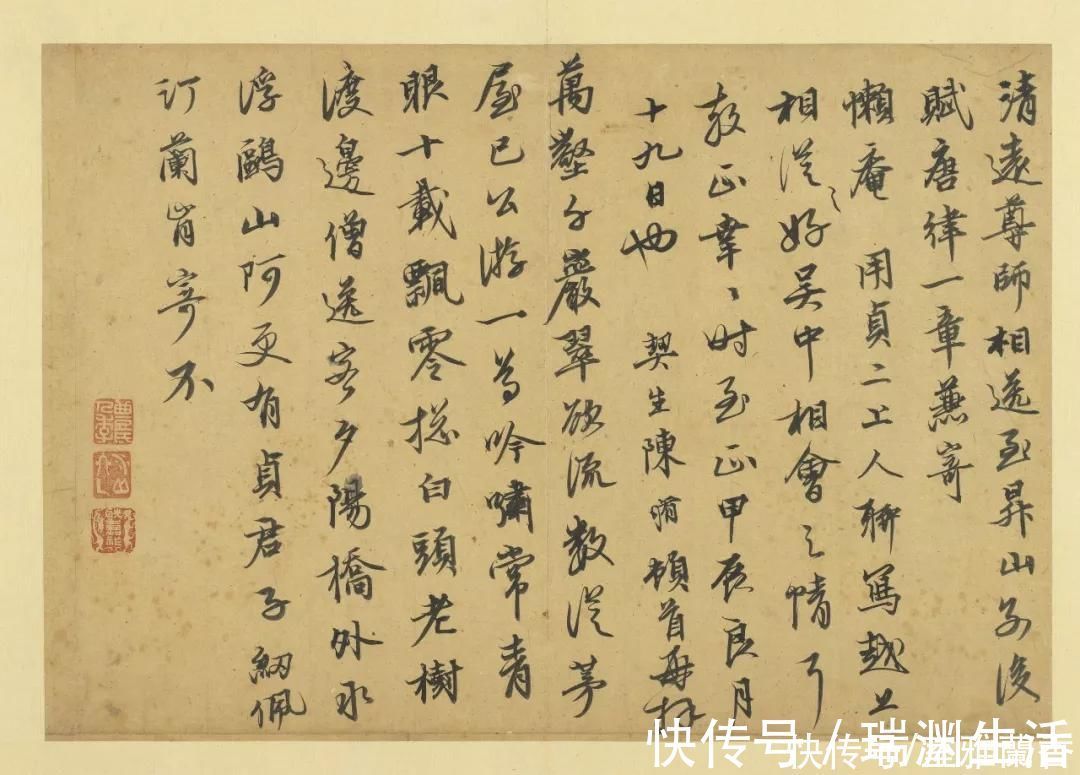 清遠尊師相送至昇山别後
賦唐律一章兼寄
懶庵 用貞二上人聊寫越上
相從之好吴中相會之情丁
教正幸幸時至正甲辰良月
十九日也 契生陳脩頓首再拜
萬壑千巖翠欲流數從茅
屋已公游一尊吟嘯常青
眼十載飄零揔白頭老樹
渡邊僧送客夕陽橋外水
浮鷗山阿更有貞君子紉佩
汀蘭肯寄不
快传号/瑞渊生活
快传号/
雅蘭香